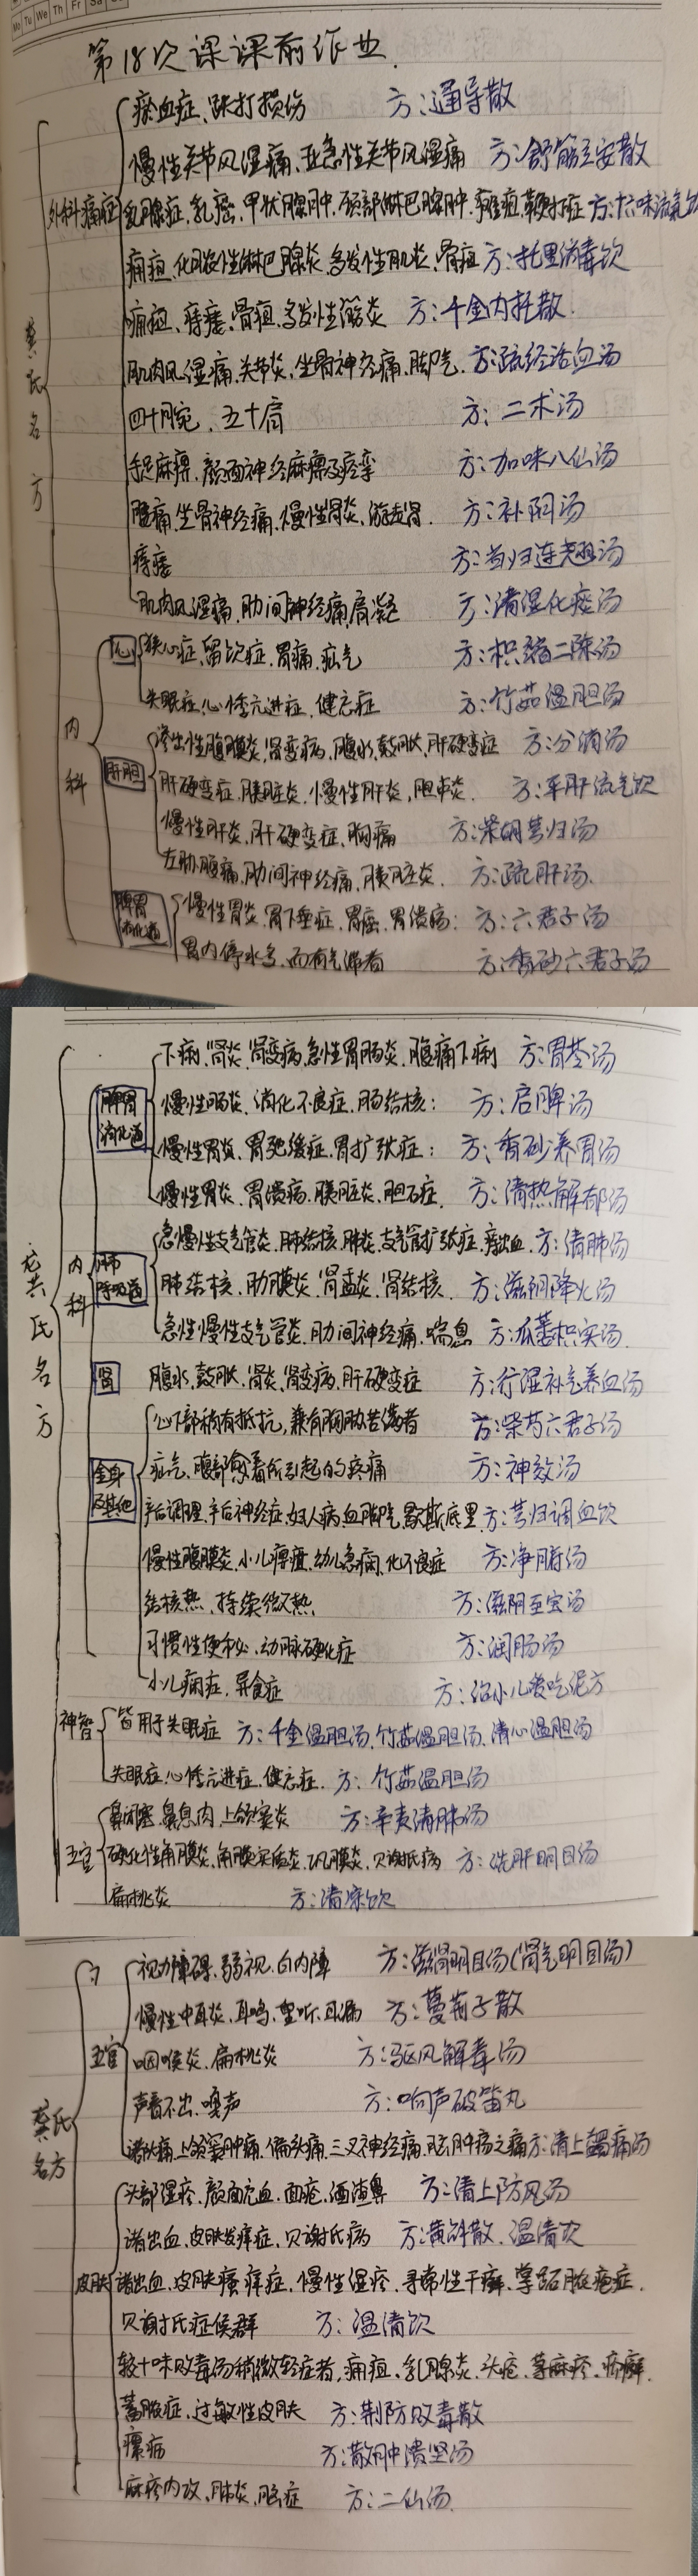 Mo Tu We Th Fr Sa
第18次课课前作业.
龚氏名方
外科痛症
瘀血症、跌打损伤 方:通导散
慢性关节风湿痛、亚急性关节风湿痛 方:舒筋立安散
乳腺症、乳癌、甲状腺肿、颈部淋巴腺肿、 方:十六味流气饮
痈疽、化脓性淋巴腺炎、多发性肌炎、骨疽 方:托里消毒饮
痈疽、痔瘘、骨疽、多发性 方:千金内托散.
肌肉风湿痛、关节炎、坐骨神经痛、脚气. 方:疏经活血汤
四十腕、五十肩 方:二术汤
手足麻痹、颜面神经麻痹及痉挛 方:加味八仙汤
腰痛、坐骨神经痛、慢性肾炎、游走肾. 方:补阴汤
痔瘘 方:当归连翘汤
肌肉风湿痛、肋间神经痛、肩凝 方:清湿化痰汤
内科
心
狭心症、留饮症、胃痛、疝气 方:枳缩二陈汤
失眠症、心悸亢进症、健忘症 方:竹茹温胆汤
肝胆
渗出性腹膜炎、肾变病、腹水、鼓胀、肝硬变症 方:分消汤
肝硬变症、胰脏炎、慢性肝炎、胆囊炎. 方:平肝流气饮
慢性肝炎、肝硬变症、胸痛 方:柴胡芎归汤
左胁腹痛、肋间神经痛、胰脏炎. 方:疏肝汤.
脾胃消化道
慢性胃炎、胃下垂症、胃癌、胃溃疡: 方:六君子汤
胃内停水多,而有气滞者 方:香砂六君子汤
龚氏名方
内科
脾胃消化道
下痢、肾炎、肾变病、急性胃肠炎、腹痛下痢 方:胃苓汤
慢性肠炎、消化不良症、肠结核: 方:启脾汤
慢性胃炎、胃弛缓症、胃扩张症: 方:香砂养胃汤
慢性胃炎、胃溃疡、胰脏炎、胆石症. 方:清热解郁汤
肺呼吸道
急慢性支气管炎、肺结核、肺炎、支气管扩张症、 方:清肺汤
肺结核、肋膜炎、肾盂炎、肾结核. 方:滋阴降火汤
急性慢性支气管炎、肋间神经痛、喘息 方:瓜蒌枳实汤.
肾
腹水、鼓胀、肾炎、肾变病、肝硬变症 方:行湿补气养血汤
全身及其他
心下部稍有抵抗,兼有胸胁苦满者 方:柴芍六君子汤
疝气、腹部愈着所引起的疼痛 方:神效汤
产后调理、产后神经症、妇人病、血脚气、歇斯底里 方:芎归调血饮
慢性腹膜炎、小儿痹疳、幼儿急痫、化不良症 方:净腑汤
结核热、持续微热 方:滋阴至宝汤
习惯性便秘、动脉硬化症 方:润肠汤
小儿疳症、异食症 方:治小儿爱吃泥方
神智
皆用于失眠症 方:千金温胆汤、竹茹温胆汤、清心温胆汤
失眠症、心悸亢进症、健忘症. 方:竹茹温胆汤
五官
鼻闭塞、鼻息肉、上颌窦炎 方:辛夷清肺汤
硬化性角膜炎、角膜实质炎、巩膜炎、贝谢氏病 方:洗肝明目汤
扁桃炎 方:清凉饮
龚氏名方
五官
视力障碍、弱视、白内障 方:滋肾明目汤(肾气明目汤)
慢性中耳炎、耳鸣、重听、耳漏 方:蔓荆子散
咽喉炎、扁桃炎 方:驱风解毒汤
声音不出、嗄声 方:响声破笛丸
诸头痛、上颌窦肿痛、偏头痛、三叉神经痛、脑肿疡之痛 方:清上蠲痛汤
皮肤
头部湿疹、颜面充血、面疮、酒渣鼻 方:清上防风汤
诸出血、皮肤发痒症、贝谢氏病 方:黄解散、温清饮
诸出血、皮肤瘙痒症、慢性湿疹、寻常性干癣、掌跖脓疱症.
贝谢氏症候群 方:温清饮
较十味败毒汤稍微轻症者,痈疽、乳腺炎、头疮、荨麻疹、疥癣.
蓄脓症、过敏性皮肤 方:荆防败毒散
瘰疬 方:散肿溃坚汤
麻疹内攻、肺炎、脑症 方:二仙汤.